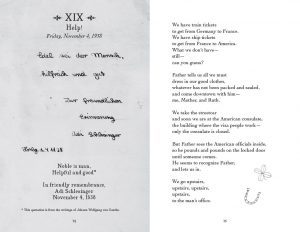 XIX
Help!
Friday, November 4, 1938
Edel sei der Mensch,
hilfreich und gut
Zur freundlichen
Erinnerung
Adi Schlesinger
4. XI 38
Noble is man,
Helpful and good*
In friendly remembrance,
Adi Schlesinger
November 4, 1938
* This quotation is from the writings of Johann Wolfgang von Goethe.
We have train tickets
to get from Germany to France.
We have ship tickets
to get from France to America.
What we don't have—
still—
can you guess?
Father tells us all we must
dress in our good clothes,
whatever has not been packed and sealed,
and come downtown with him—
me, Mother, and Ruth.
We take the streetcar
and soon we are at the American consulate,
the building where the visa people work—
only the consulate is closed.
But Father sees the American officials inside,
so he pounds and pounds on the locked door
until someone comes.
He seems to recognize Father
and lets us in.
We go upstairs,
upstairs, upstairs,
upstairs,
to the man's office.